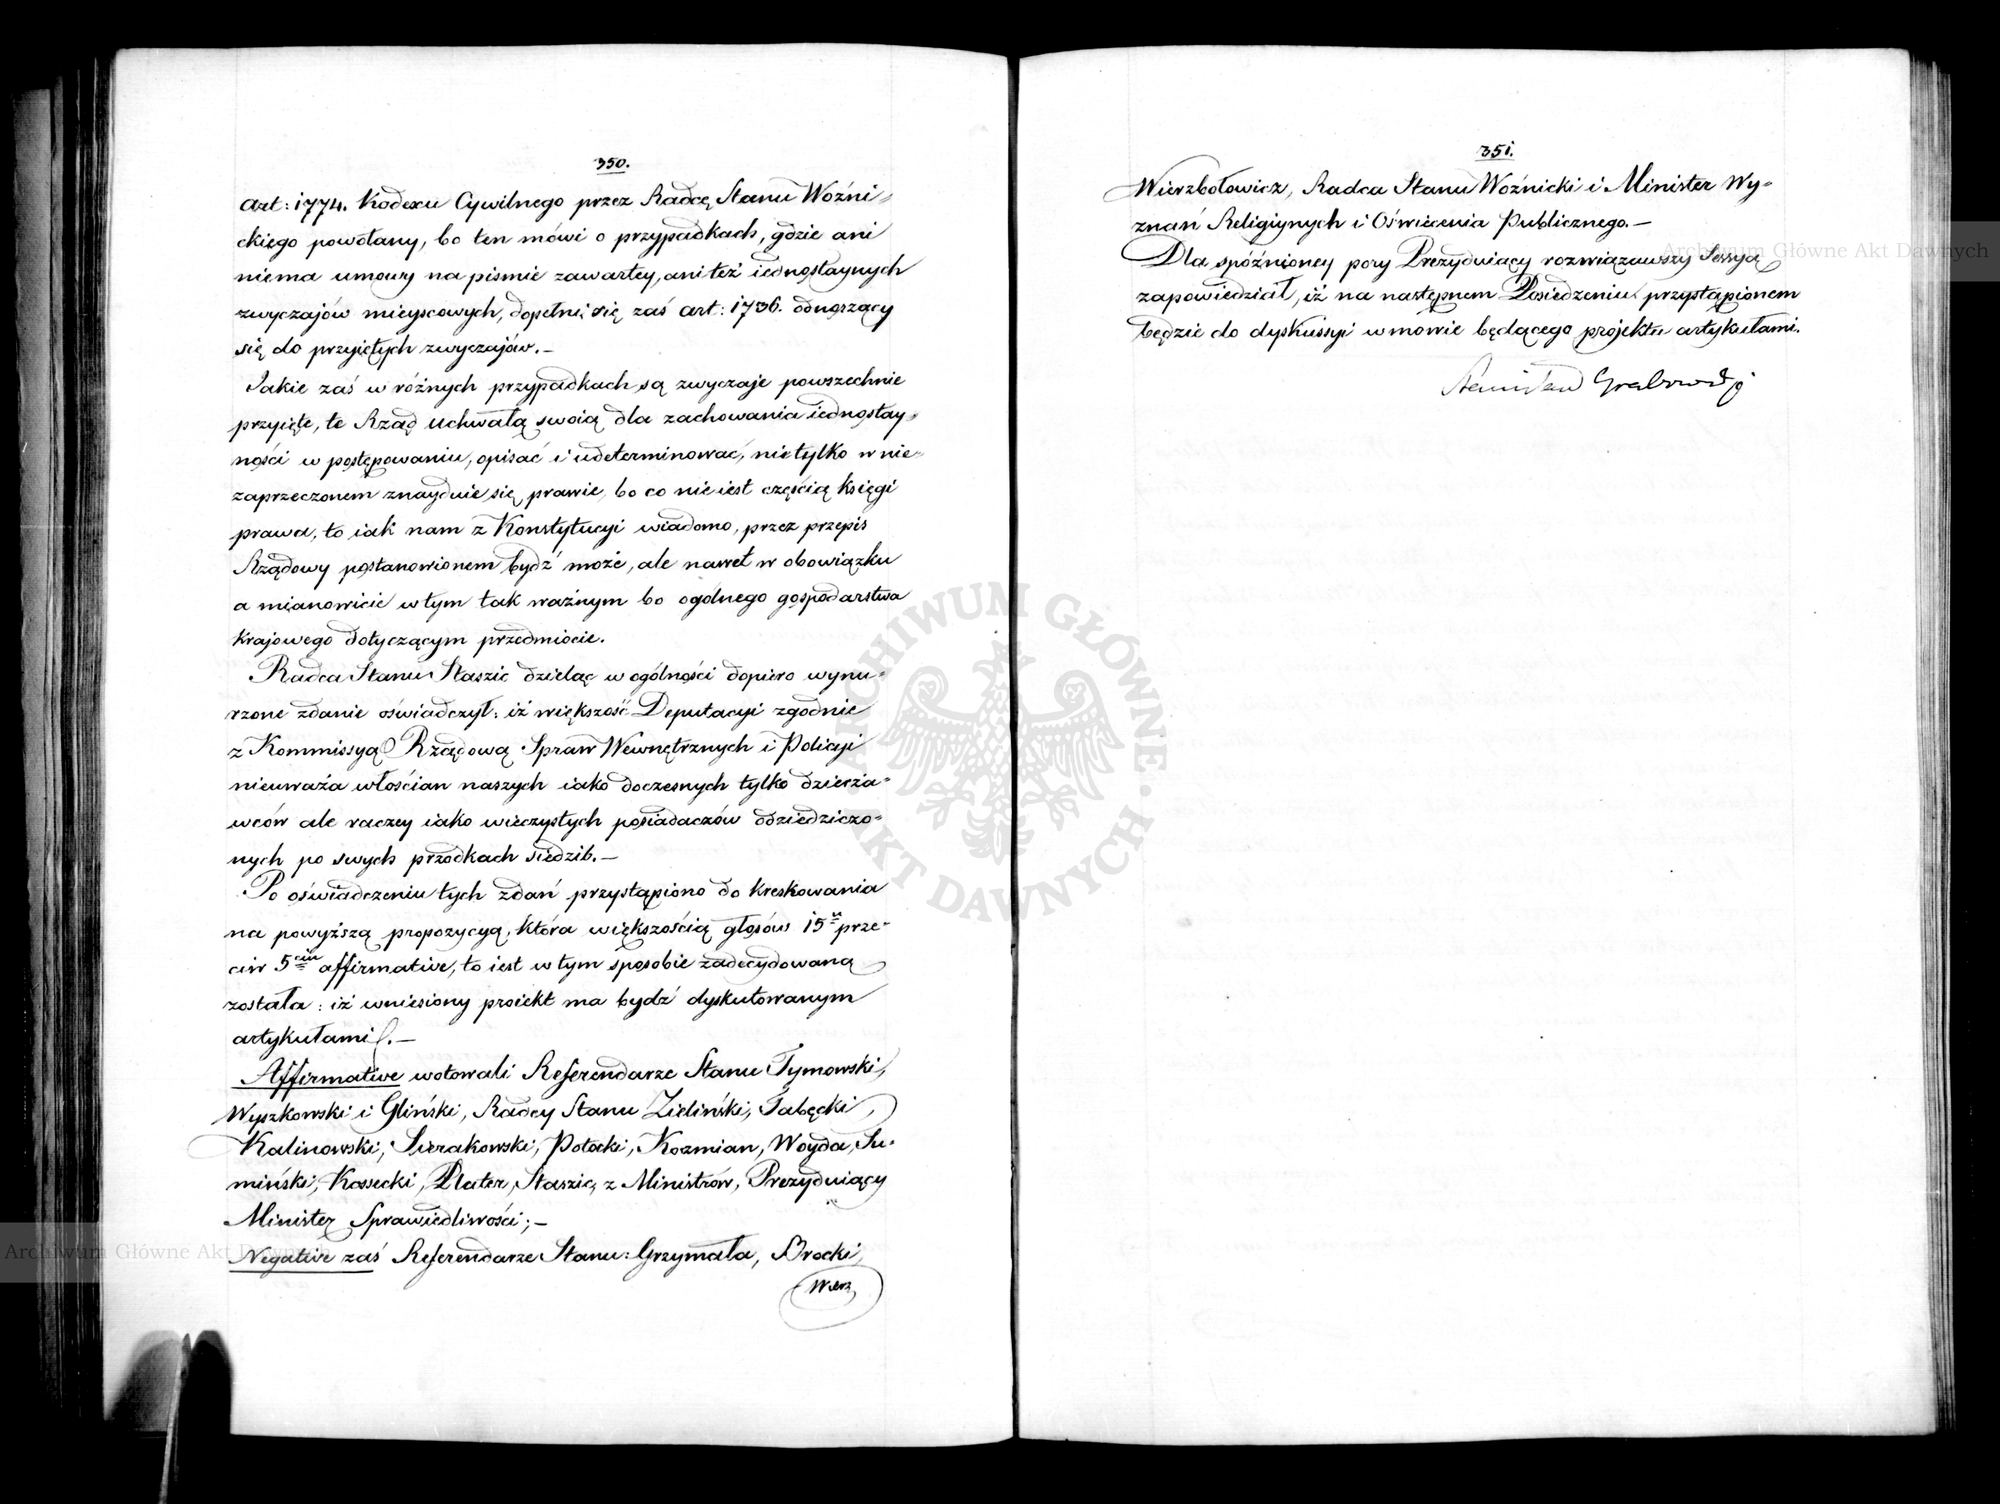 350.
Art: 1774. Kodexu Cywilnego przez Radcę Stanu Woźni-
ckiego powołany, bo ten mówi o przypadkach, gdzie ani
niema umowy na piśmie zawartey, ani też iednostaynych
zwyczajów mieyscowych, dopełni się zaś art: 1736. odnoszący
się do przyiętych zwyczajów. —
Jakie zaś w różnych przypadkach są zwyczaje powszechnie
przyięte, te Rząd uchwałą swoią dla zachowania iednostay-
ności w postępowaniu, opisać i udeterminować, nietylko w nie-
zaprzeczonem znayduie się prawie, bo co nie iest częścią księgi
prawa, to iak nam z Konstytucyi wiadomo, przez przepis
Rządowy postanowionem bydź może, ale nawet w obowiązku
a mianowicie w tym tak ważnym bo ogólnego gospodarstwa
krajowego dotyczącym przedmiocie.
Radca Stanu Staszic dzieląc w ogólności dopiero wynu-
rzone zdanie oświadczył: iż większość Deputacyi zgodnie
z Kommissyą Rządową Spraw Wewnętrznych i Policyi
nieuważa włościan naszych iako doczesnych tylko dzierża-
wców ale raczey iako wieczystych posiadaczów odziedziczo-
nych po swych przodkach siedzib. —
Po oświadczeniu tych zdań przystąpiono do kreskowania
na powyższą propozycyą, która większością głosów 15u prze-
ciw 5ciu affirmative, to iest w tym sposobie zadecydowaną
została: iż wniesiony proiekt ma bydź dyskutowanym
artykułami. —
Affirmative wotowali Referendarze Stanu Tymowski,
Wyszkowski i Gliński, Radcy Stanu Zieliński, Tabęcki,
Kalinowski, Sierakowski, Potocki, Kozmian, Woyda, Su-
miński, Kossecki, Plater, Staszic, z Ministrów, Prezyduiący
Minister Sprawiedliwości; —
Negative zaś Referendarze Stanu: Grzymała, Brocki,
Wierz
351.
Wierzbołowicz, Radca Stanu Woźnicki i Minister Wy-
znań Religiynych i Oświecenia Publicznego. —
Dla spóźnioney pory Prezyduiący rozwiązawszy Sessyą
zapowiedział, iż na następnem Posiedzeniu przystąpionem
będzie do dyskussyi w mowie będącego projektu artykułami.
Stanisław Grabowski
Archiwum Główne Akt Dawnych
Archiwum Główne Akt Dawnych
ARCHIWUM GŁÓWNE AKT DAWNYCH